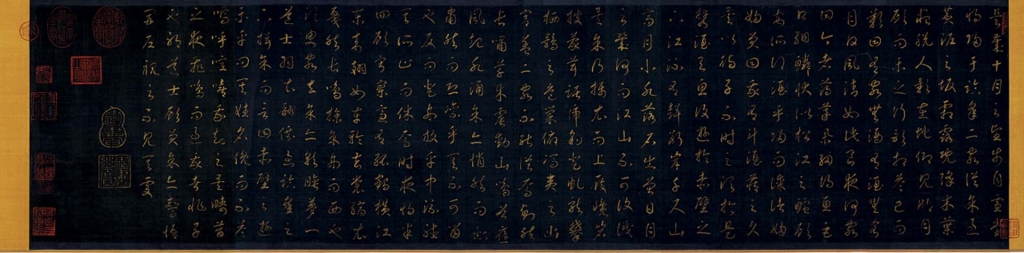 是歲十月之望步自雪堂
將歸于臨皋二客從予過
黃泥之坂霜露既降木葉
盡脫人影在地仰見明月
顧而樂之行歌相答已而
歎曰有客無酒有酒無肴
月白風清如此良夜何客
曰今者薄暮舉網得魚巨
口細鱗狀似松江之鱸顧
安所得酒乎歸而謀諸婦
婦曰我有斗酒藏之久
矣以待子不時之須於是
攜酒與魚復遊於赤壁之
下江流有聲斷岸千尺山
高月小水落石出曾日月
之幾何而江山不可復識
矣予乃攝衣而上履巉巖
披蒙茸踞虎豹登虬龍攀
栖鶻之危巢俯馮夷之幽
宮蓋二客不能從焉劃然
長嘯草木震動山鳴谷應
風起水涌予亦悄然而悲
肅然而恐凜乎其不可留
也反而登舟放乎中流聽
其所止而休焉時夜將半
四顧寂寥適有孤鶴橫江
東來翅如車輪玄裳縞衣
戛然長鳴掠予舟而西也
須臾客去予亦就睡夢一
道士羽衣蹁躚過臨皋之
下揖予而言曰赤壁之遊
樂乎問其姓名俛而不答
嗚呼噫嘻我知之矣疇昔
之夜飛鳴而過我者非子
也耶道士顧笑予亦驚悟
開戶視之不見其處